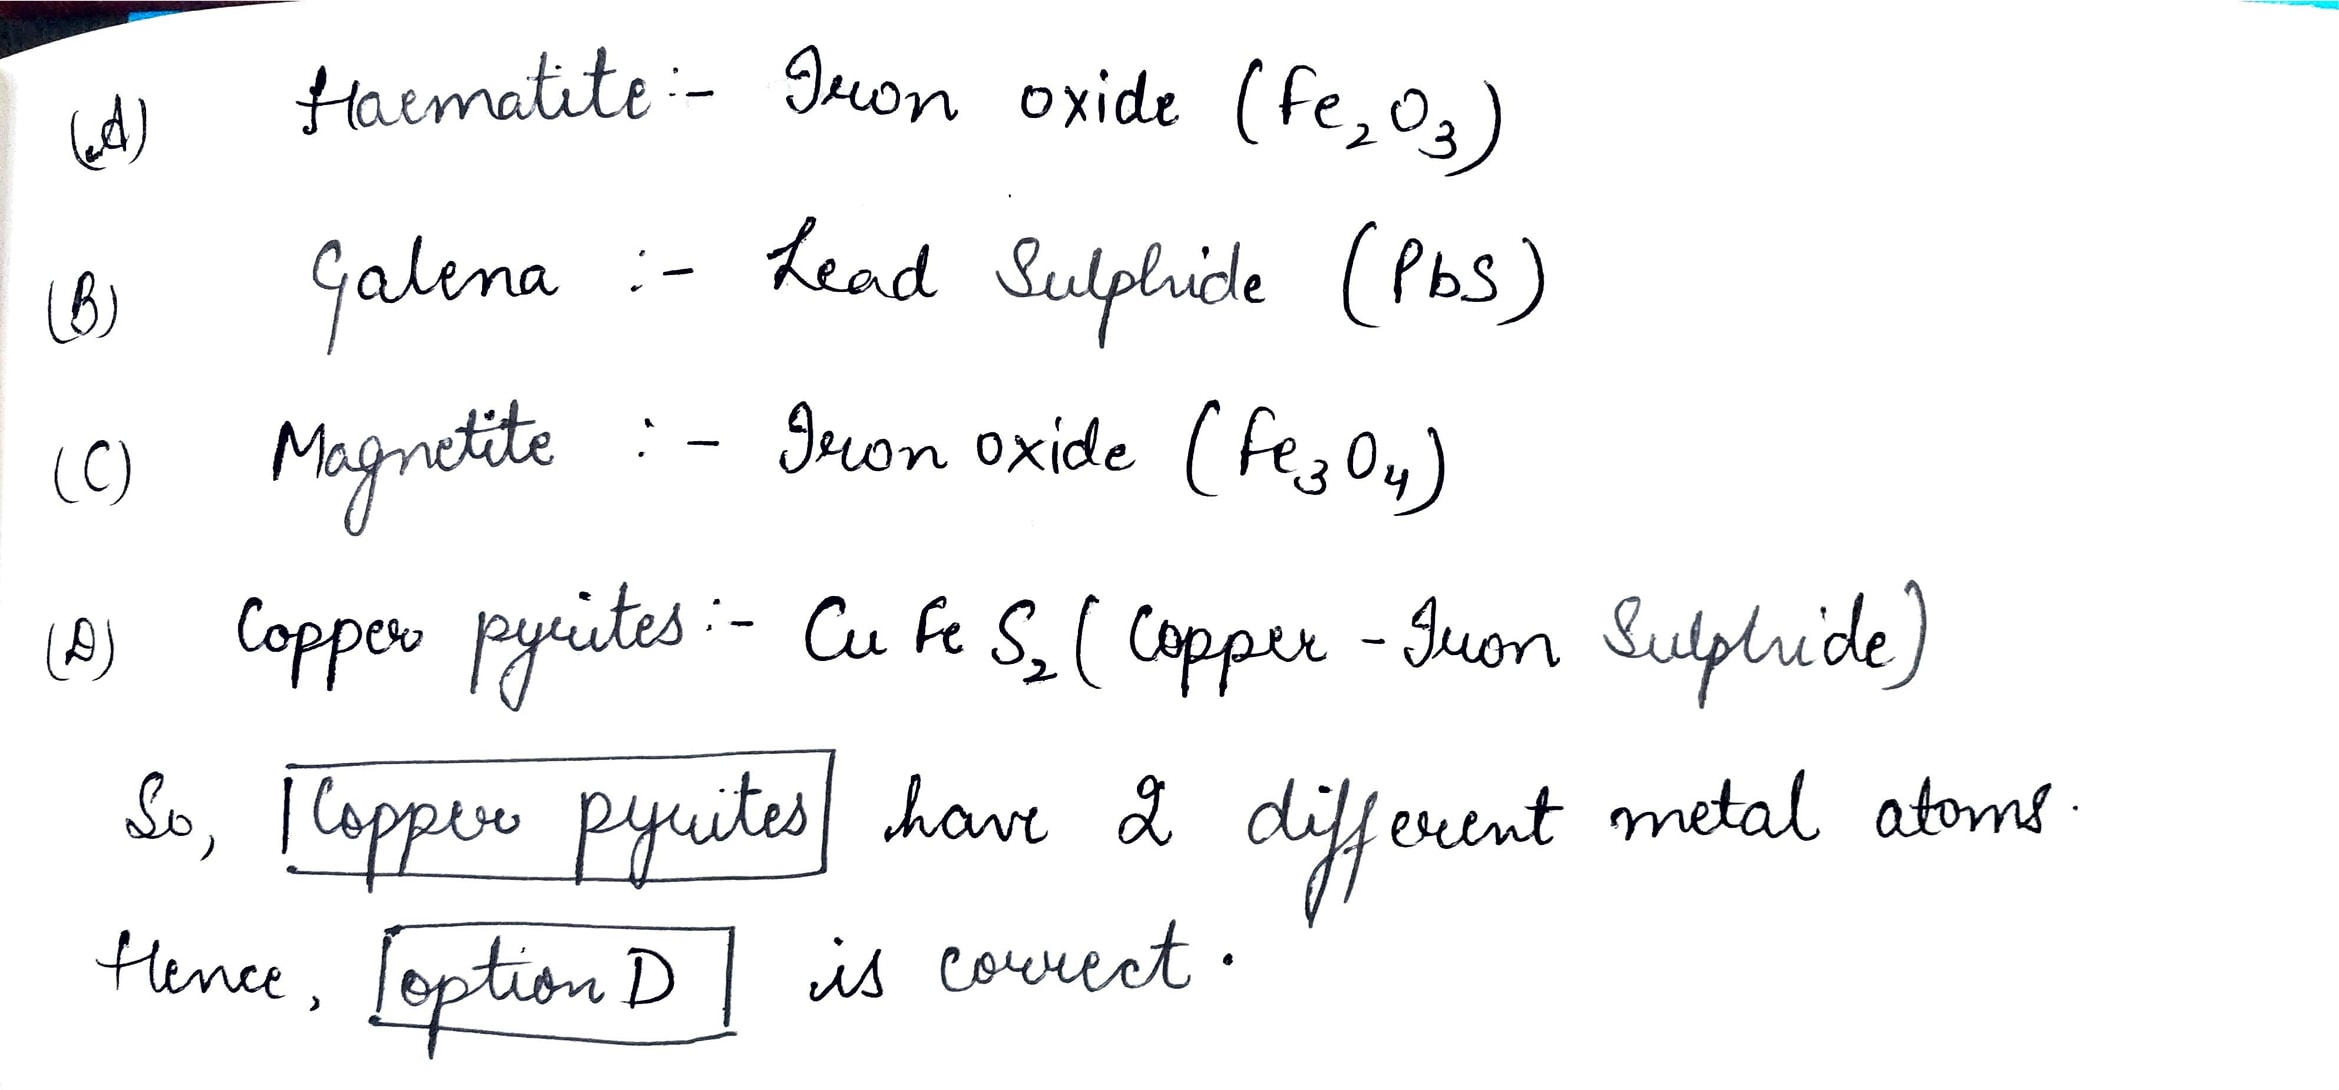 (A) Haematite :- Iron oxide (Fe₂O₃)
(B) Galena :- Lead Sulphide (PbS)
(C) Magnetite :- Iron oxide (Fe₃O₄)
(D) Copper pyrites :- CuFeS₂ (Copper-Iron Sulphide)
So, Copper pyrites have 2 different metal atoms.
Hence, option D is correct.